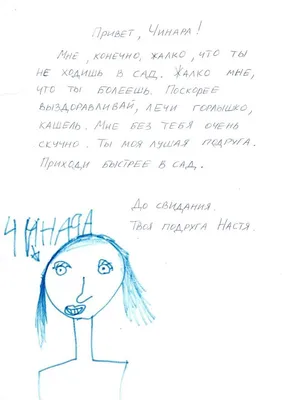 Привет, Чинара!
Мне, конечно, жалко, что ты
не ходишь в сад. Жалко мне,
что ты болеешь. Поскорее
выздоравливай, лечи горлышко,
кашель. Мне без тебя очень
скучно. Ты моя лушая подруга.
Приходи быстрее в сад.
До свидания.
Твоя подруга Настя.
ЧИНАРА